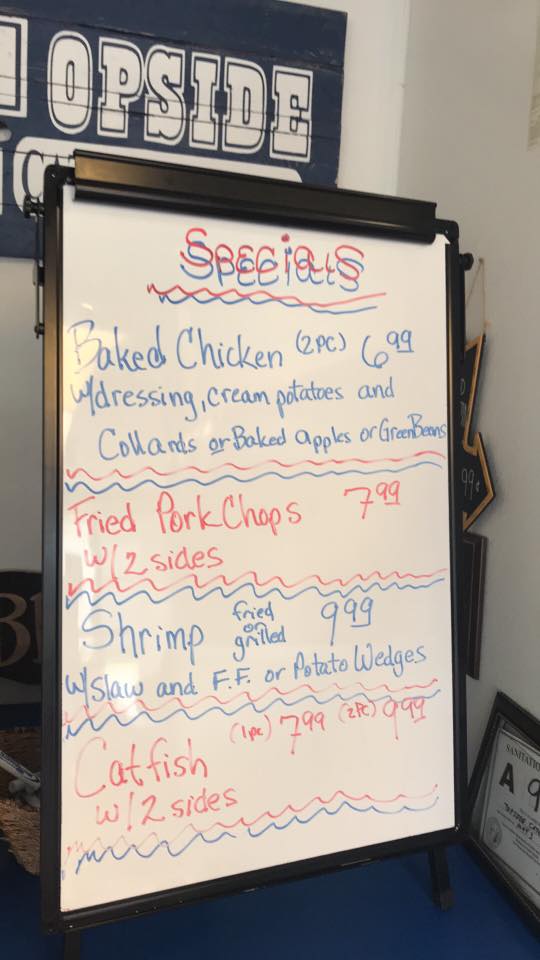 OPSIDE
Specials
Baked Chicken (2PC) 6.99
w/dressing, cream potatoes and
Collards or Baked apples or Green Beans
Fried Pork Chops 7.99
w/ 2 sides
Shrimp fried or grilled 9.99
w/slaw and F.F. or Potato Wedges
Catfish (1pc) 7.99 (2PC) 9.99
w/ 2 sides
99¢
SANITATIO
A 9